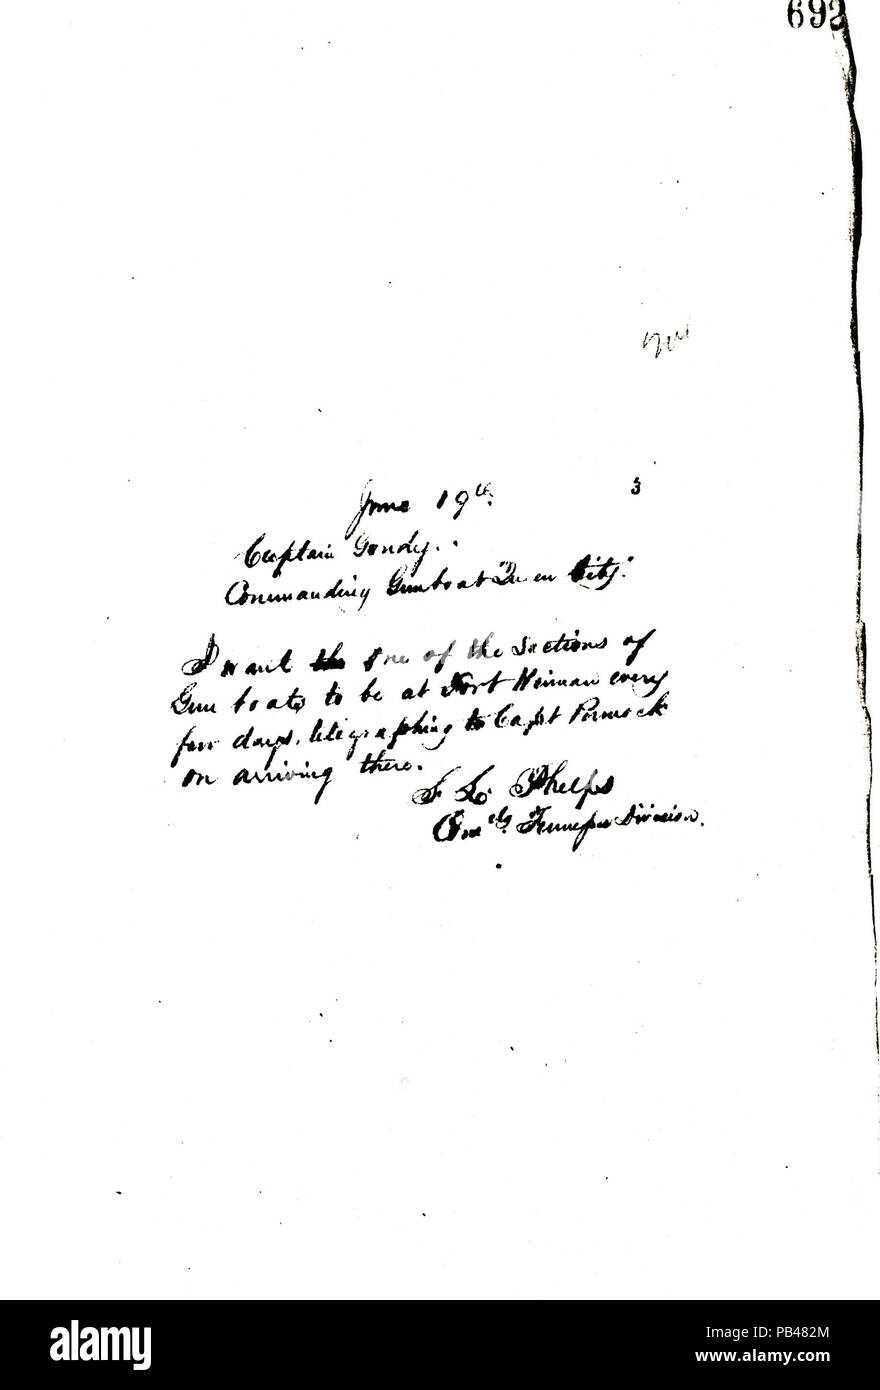 692
June 19th. 3
Captain Goudy.
Commanding Gunboat "Queen City."
I want the one of the sections of
Gun boats to be at Fort Heiman every
few days, telegraphing to Capt Pennock
on arriving there.
S. L. Phelps
Comdg. Tennessee Division.
alamy
Image ID: PB482M
www.alamy.com